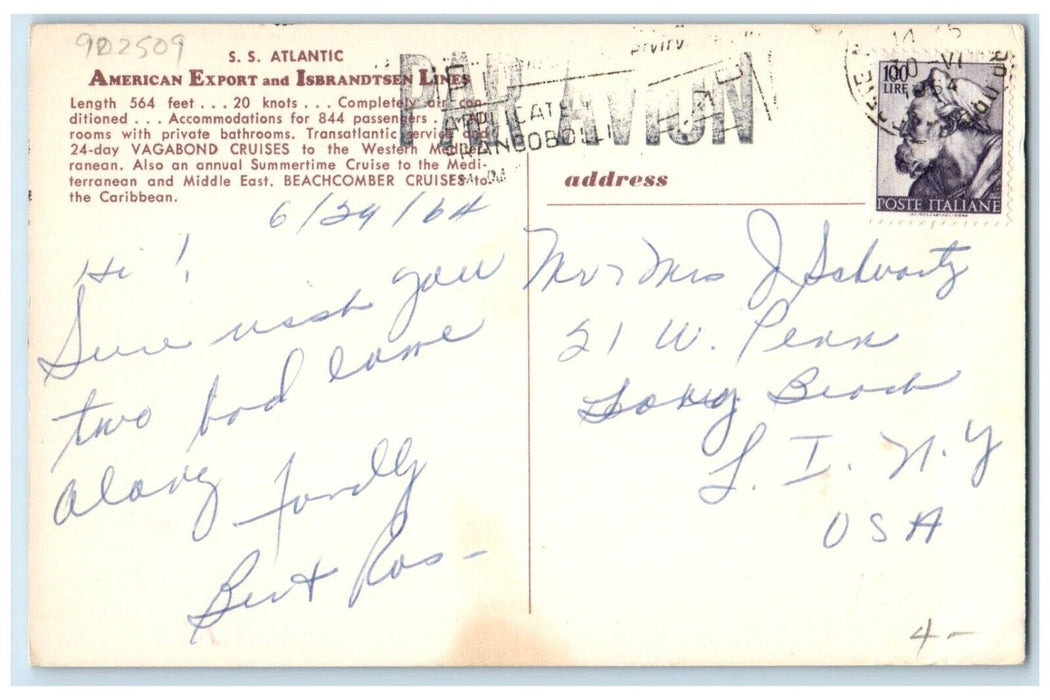 9D2509
S. S. ATLANTIC
AMERICAN EXPORT and ISBRANDTSEN LINES
Length 564 feet . . . 20 knots . . . Completely air con-
ditioned . . . Accommodations for 844 passengers . . .
rooms with private bathrooms. Transatlantic service and
24-day VAGABOND CRUISES to the Western Mediter-
ranean. Also an annual Summertime Cruise to the Medi-
terranean and Middle East. BEACHCOMBER CRUISES to
the Caribbean.
PAR AVION
FRANCOBOLLI
1964
100
LIRE
POSTE ITALIANE
address
6/29/64
Hi !
Sure wish you
two had come
along fondly
Bert Ros –
Mr & Mrs J Schwartz
21 W. Penn
Long Beach
L. I. N. Y
USA
4 –